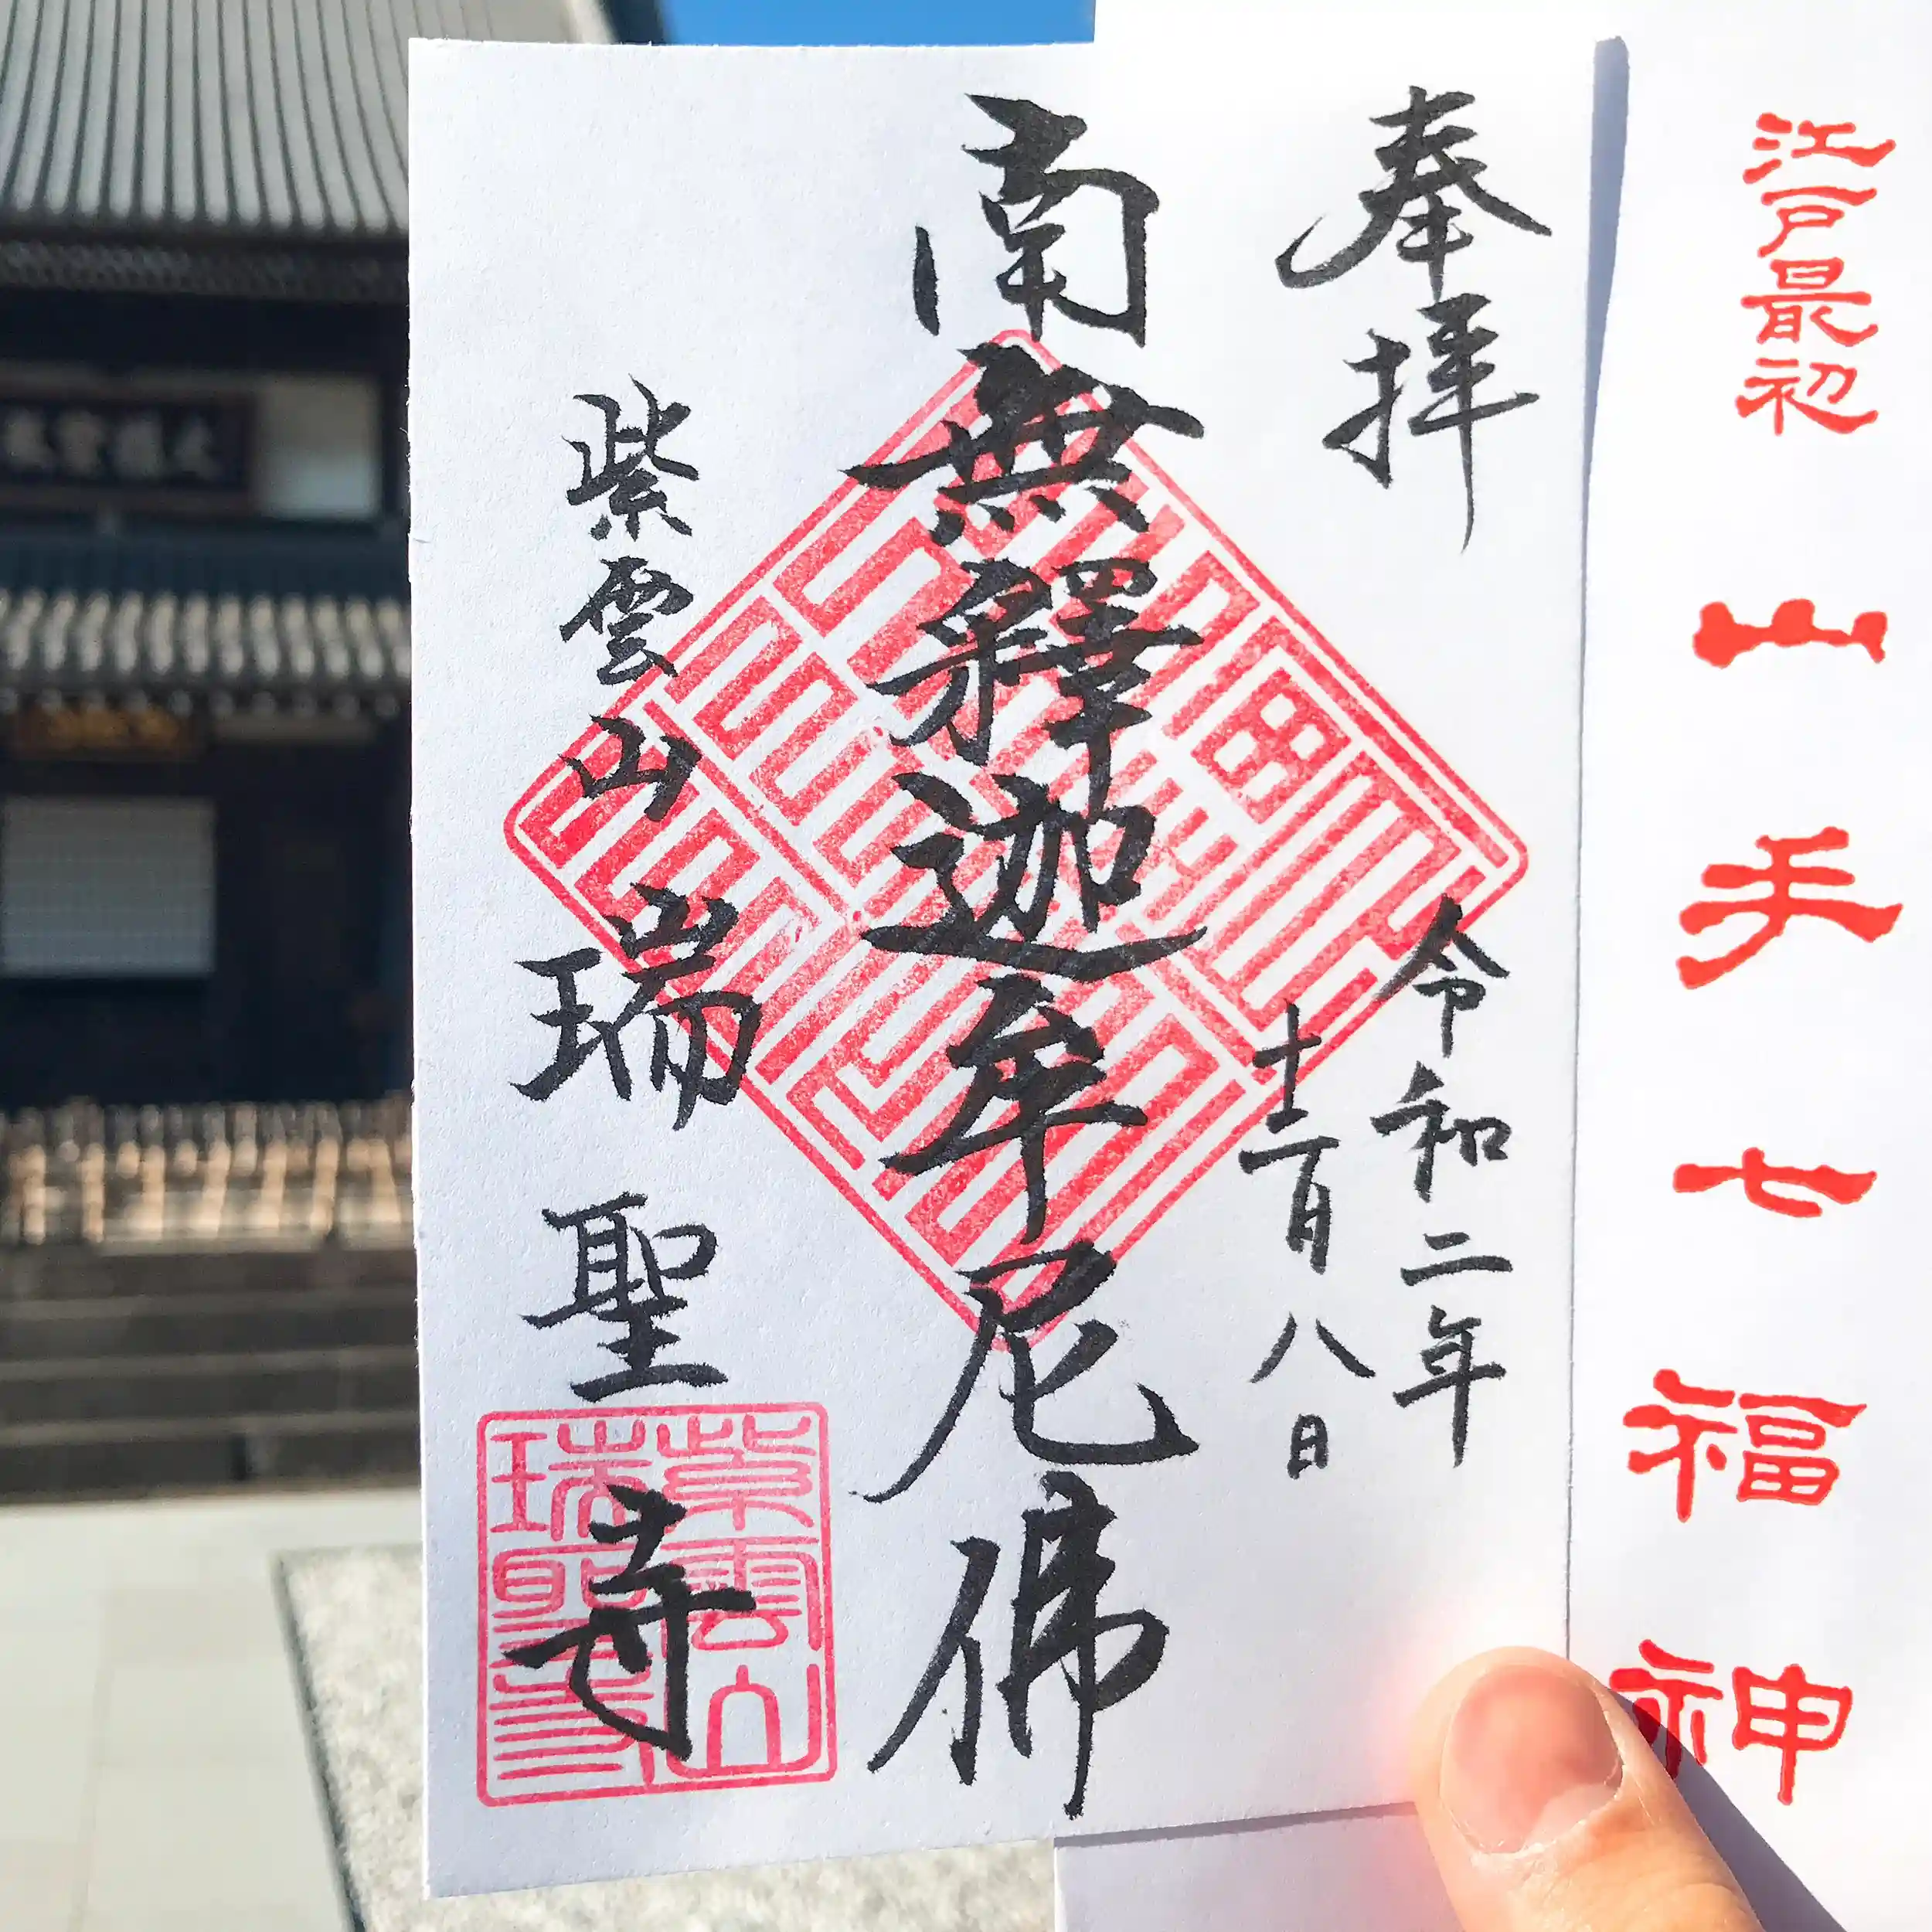 江戸最初 山手七福神
奉拝
令和二年
十二月八日
南無釋迦牟尼佛
紫雲山 瑞聖寺
紫雲山
瑞聖寺